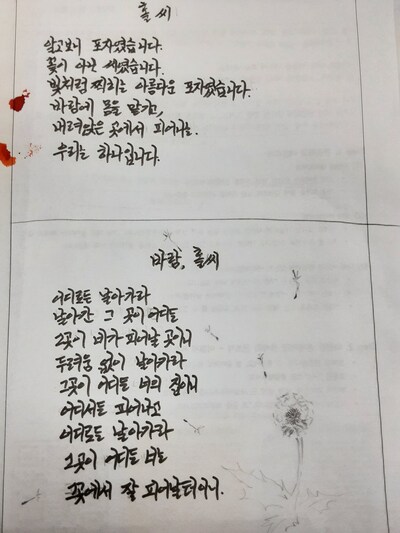 홀씨
알고보니 포자였습니다.
꽃이 아닌 씨였습니다.
빛처럼 찌르는 아름다운 포자였습니다.
바람에 몸을 맡기고,
내려앉은 곳에서 피어나는.
우리는 하나입니다.
바람, 홀씨
어디로든 날아가라
날아간 그 곳이 어디든
그곳이 네가 피어날 곳이니
두려움 없이 날아가라
그곳이 어디든 너의 집이니
어디서든 피어나고
어디로든 날아가라
그곳이 어디든 너는
그곳에서 잘 피어날터이니.